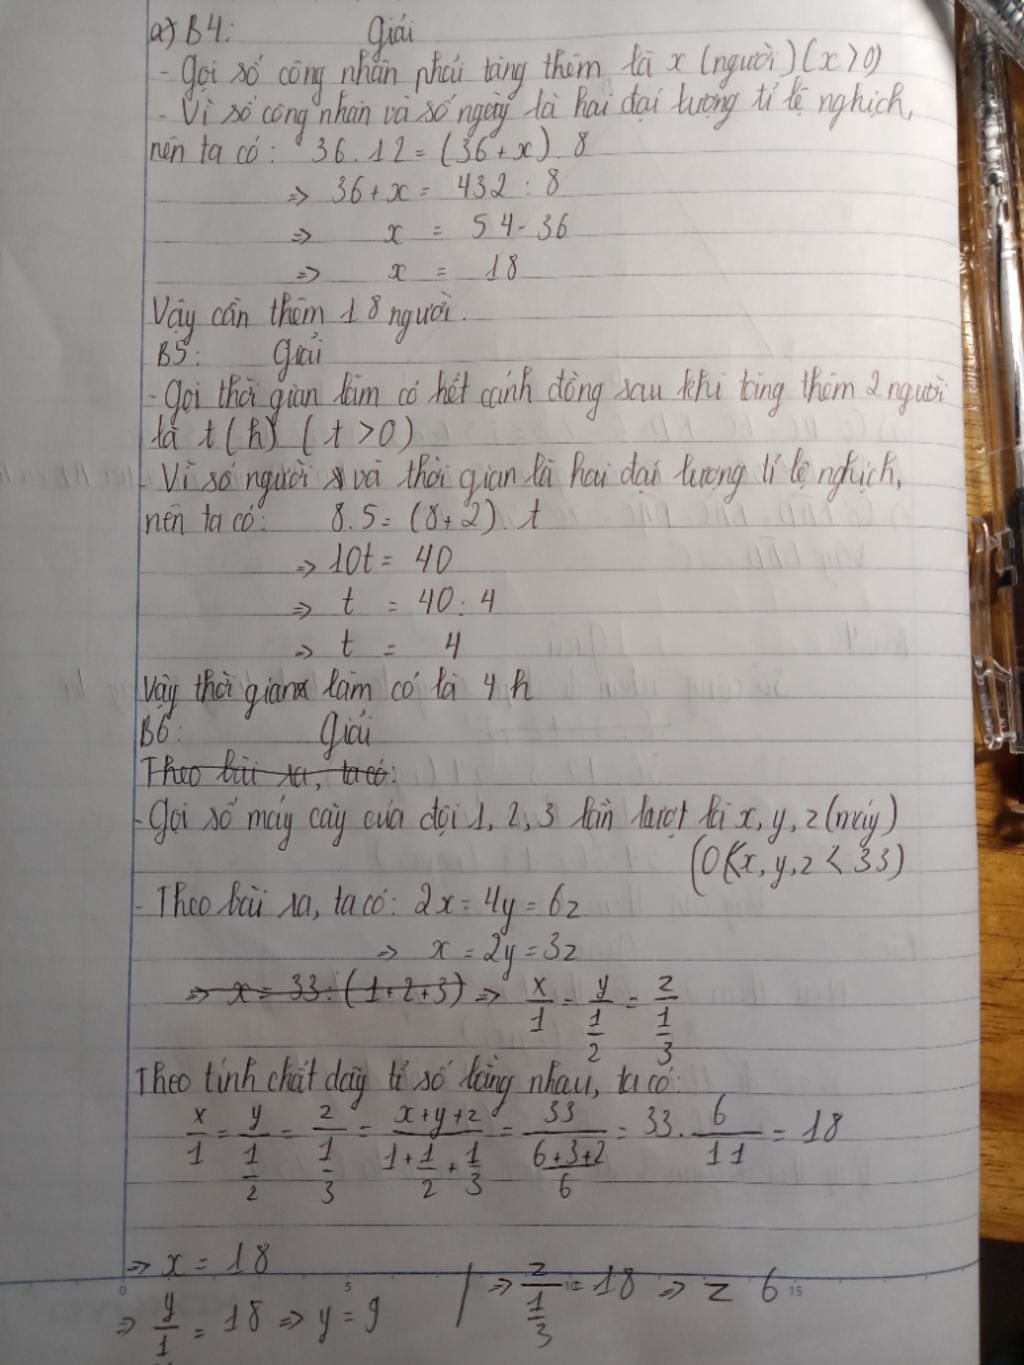 a) B4: Giải
- Gọi số công nhân phải tăng thêm là x (người) (x > 0)
- Vì số công nhân và số ngày là hai đại lượng tỉ lệ nghịch,
nên ta có: 36 . 12 = (36 + x) . 8
=> 36 + x = 432 : 8
=> x = 54 - 36
=> x = 18
Vậy cần thêm 18 người.
B5: Giải
- Gọi thời gian làm cỏ hết cánh đồng sau khi tăng thêm 2 người
là t (h) (t > 0)
- Vì số người và thời gian là hai đại lượng tỉ lệ nghịch,
nên ta có: 8 . 5 = (8 + 2) . t
=> 10t = 40
=> t = 40 : 4
=> t = 4
Vậy thời gian làm cỏ là 4 h
B6: Giải
Theo bài ra, ta có:
- Gọi số máy cày của đội 1, 2, 3 lần lượt là x, y, z (máy)
(0 < x, y, z < 33)
- Theo bài ra, ta có: 2x = 4y = 6z
=> x = 2y = 3z
=> x = 33 : (1 + 2 + 3) => x/1 = y/(1/2) = z/(1/3)
Theo tính chất dãy tỉ số bằng nhau, ta có:
x/1 = y/(1/2) = z/(1/3) = (x+y+z)/(1 + 1/2 + 1/3) = 33/((6+3+2)/6) = 33 . 6/11 = 18
=> x = 18
=> y/1 = 18 => y = 9
=> z/(1/3) = 18 => z 6
0 5 10 15